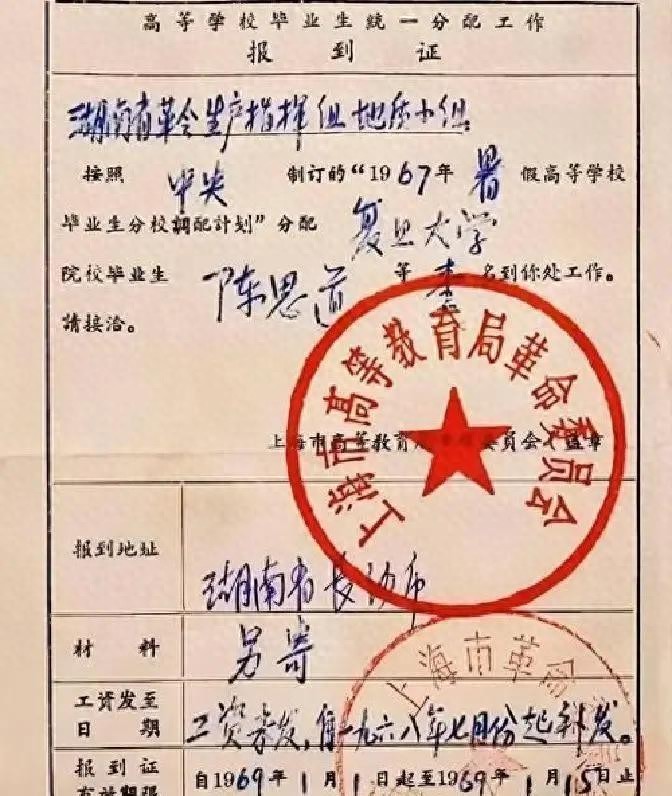 高等学校毕业生统一分配工作
报到证
湖南省革会生产指挥组地质小组
按照 中央 制订的“1967年 暑 假高等学校
毕业生分校调配计划”分配 复旦大学
院校毕业生 陈思道 等 壹 名到你处工作。
請接洽。
上海市高等教育局革命委员会
上海市高等教育 委員会 盖章
报到地址 湖南省长沙市
材料 另寄
上海市革命
工资发至
日期
工资未发,自一九六八年七月份起补发。
报到证
有效期限
自1969年1月1日起至1969年1月15日止